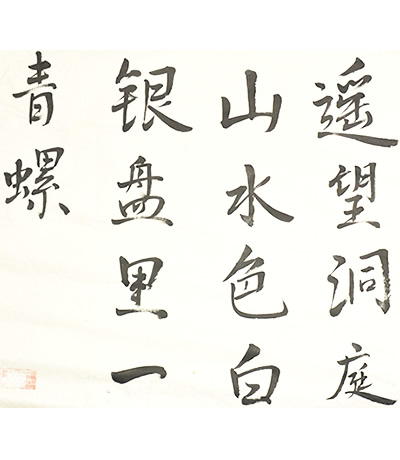 遥望洞庭
山水色白
银盘里一
青螺